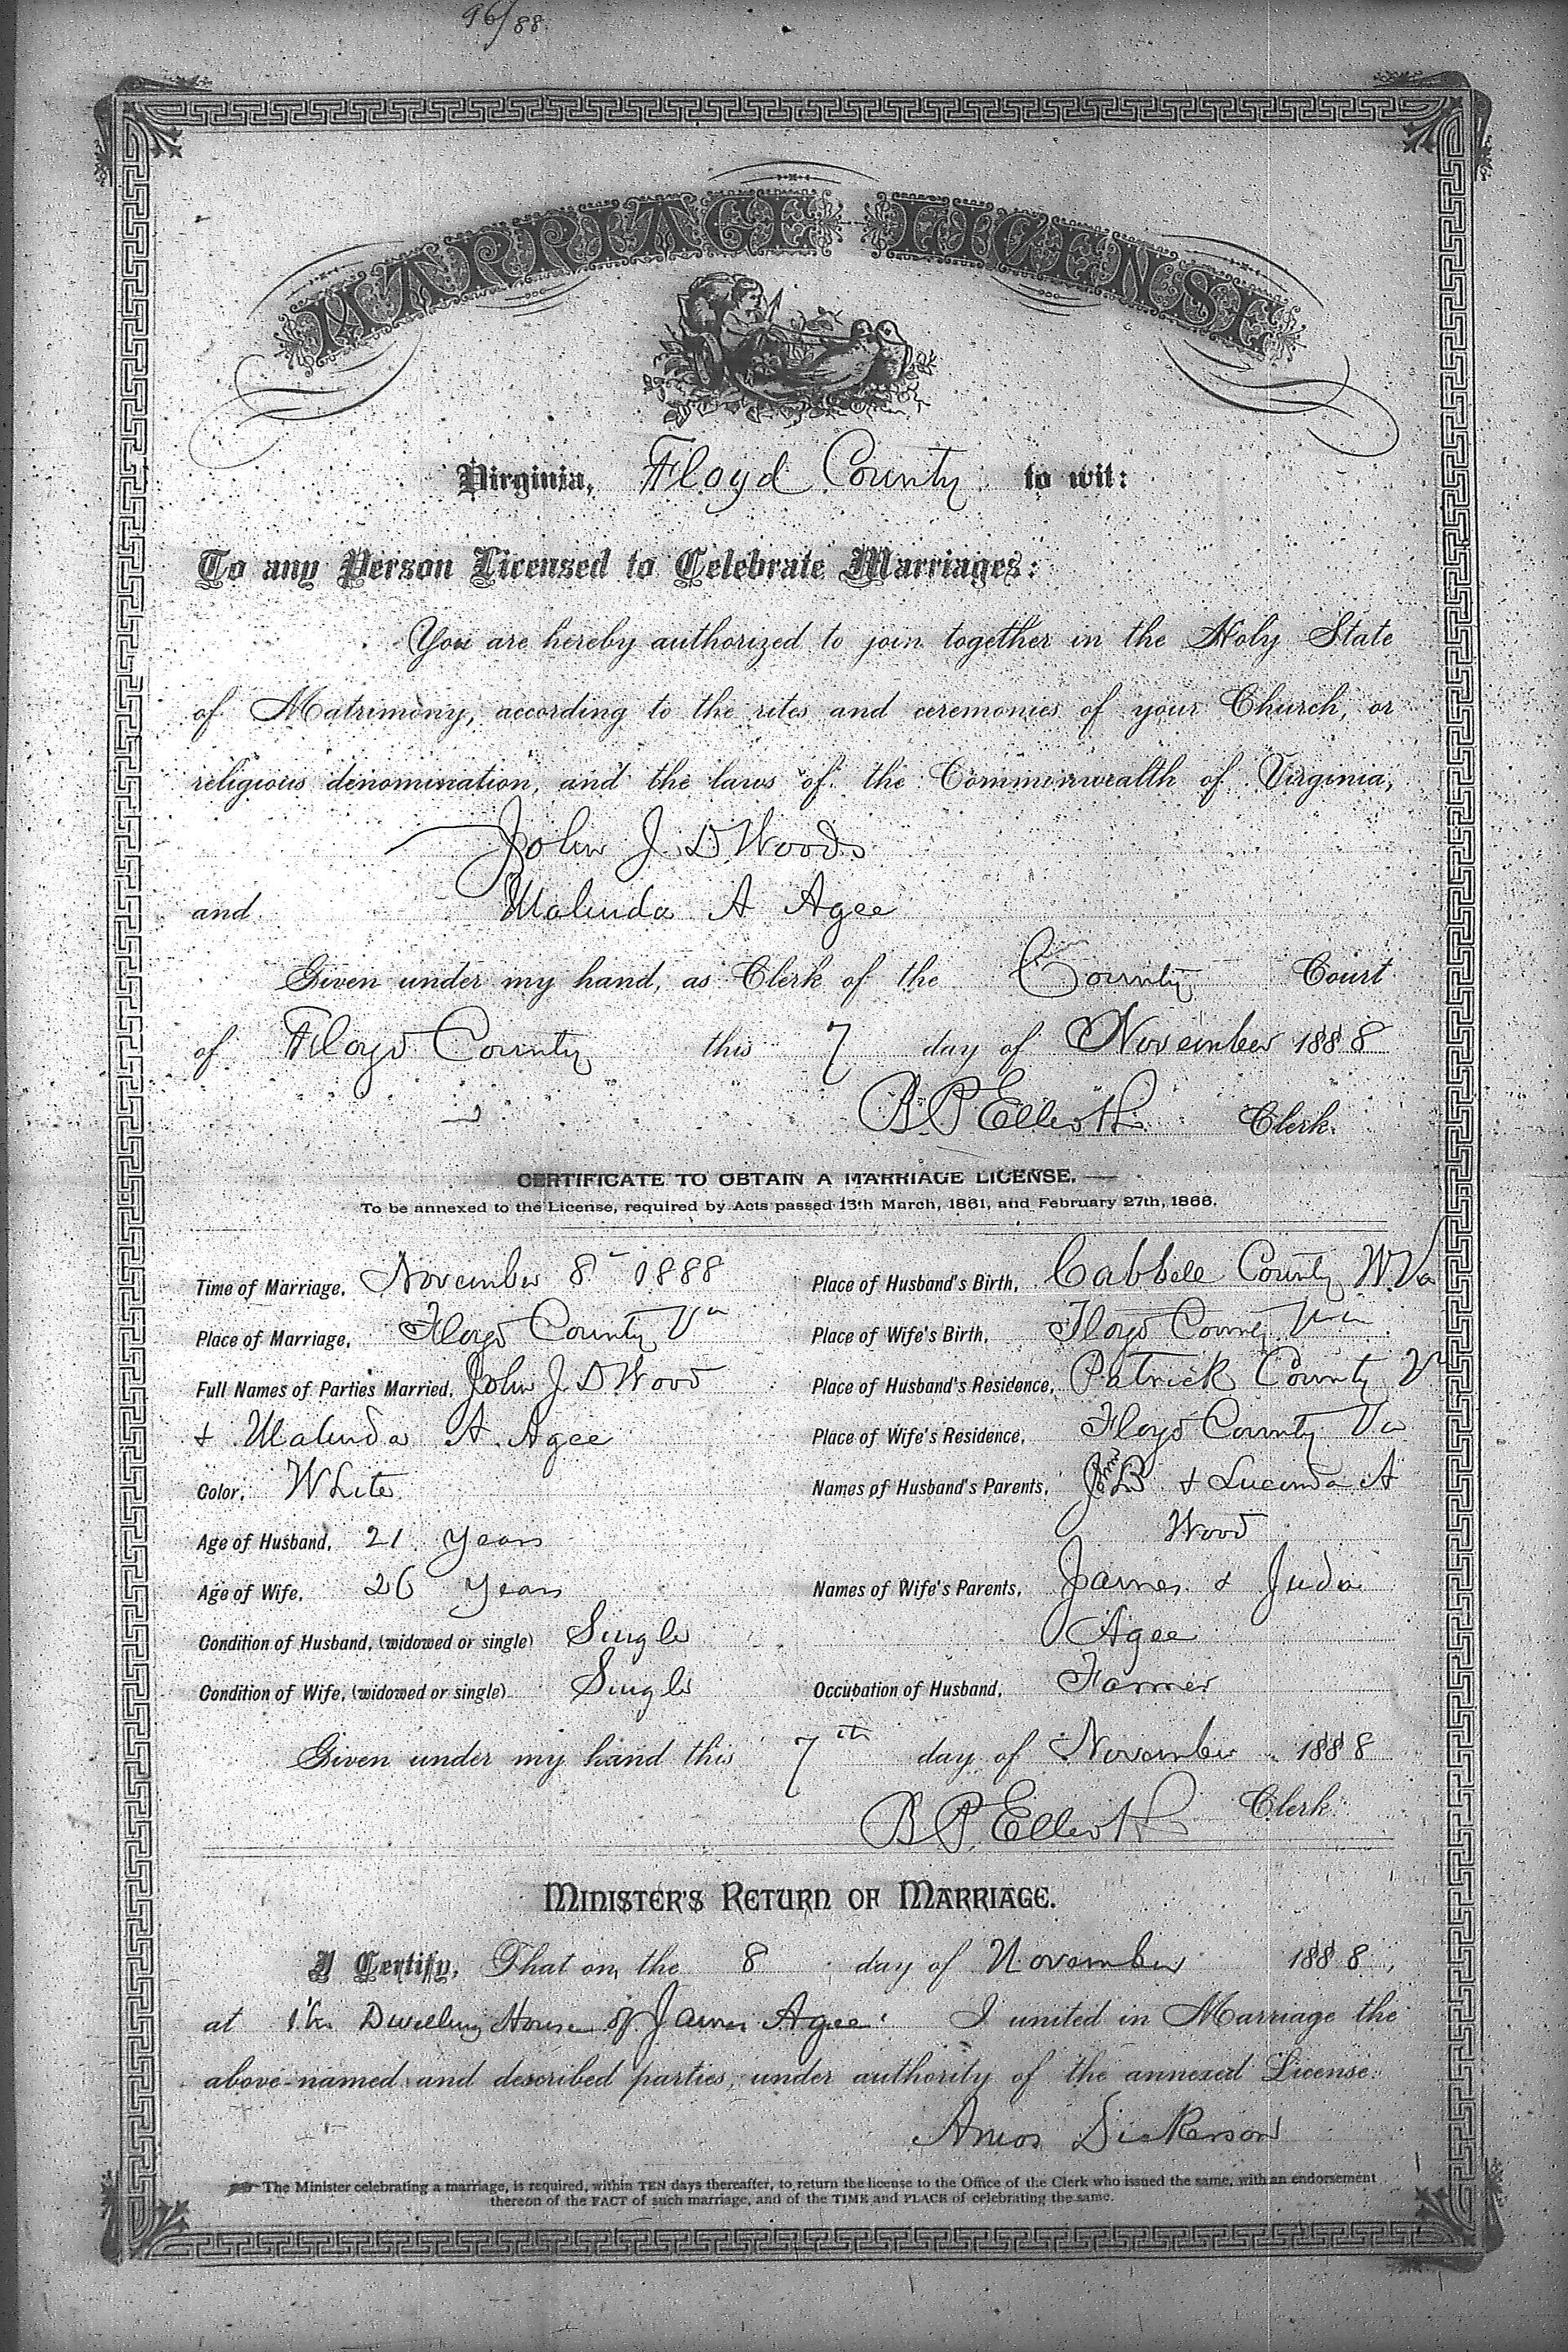 96/88
MARRIAGE LICENSE
Virginia, Floyd County to wit:
To any Person Licensed to Celebrate Marriages:
You are hereby authorized to join together in the Holy State
of Matrimony, according to the rites and ceremonies of your Church, or
religious denomination, and the laws of the Commonwealth of Virginia,
John J. D. Woods
and Malinda A Agee
Given under my hand, as Clerk of the County Court
of Floyd County this 7 day of November 1888
B. P. Clerk.
CERTIFICATE TO OBTAIN A MARRIAGE LICENSE.
To be annexed to the License, required by Acts passed 13th March, 1861, and February 27th, 1866.
Time of Marriage, November 8 1888
Place of Marriage, Floyd County Va
Full Names of Parties Married, John J. D Wood
+ Malinda A. Agee
Color, White
Age of Husband, 21 years
Age of Wife, 26 years
Condition of Husband, (widowed or single) Single
Condition of Wife, (widowed or single) Single
Place of Husband's Birth, Cabbele County W. Va
Place of Wife's Birth, Floyd County Va
Place of Husband's Residence, Patrick County V
Place of Wife's Residence, Floyd County Va
Names of Husband's Parents, B + Lucinda A
Wood
Names of Wife's Parents, James & Juda
Agee
Occupation of Husband, Farmer
Given under my hand this 7th day of November 1888
B. P. Clerk.
MINISTER'S RETURN OF MARRIAGE.
I Certify, That on the 8 day of November 1888,
at the Dwelling House of James Agee I united in Marriage the
above-named and described parties, under authority of the annexed License.
Amos Dickerson
The Minister celebrating a marriage, is required, within TEN days thereafter, to return the license to the Office of the Clerk who issued the same, with an endorsement
thereon of the FACT of such marriage, and of the TIME and PLACE of celebrating the same.